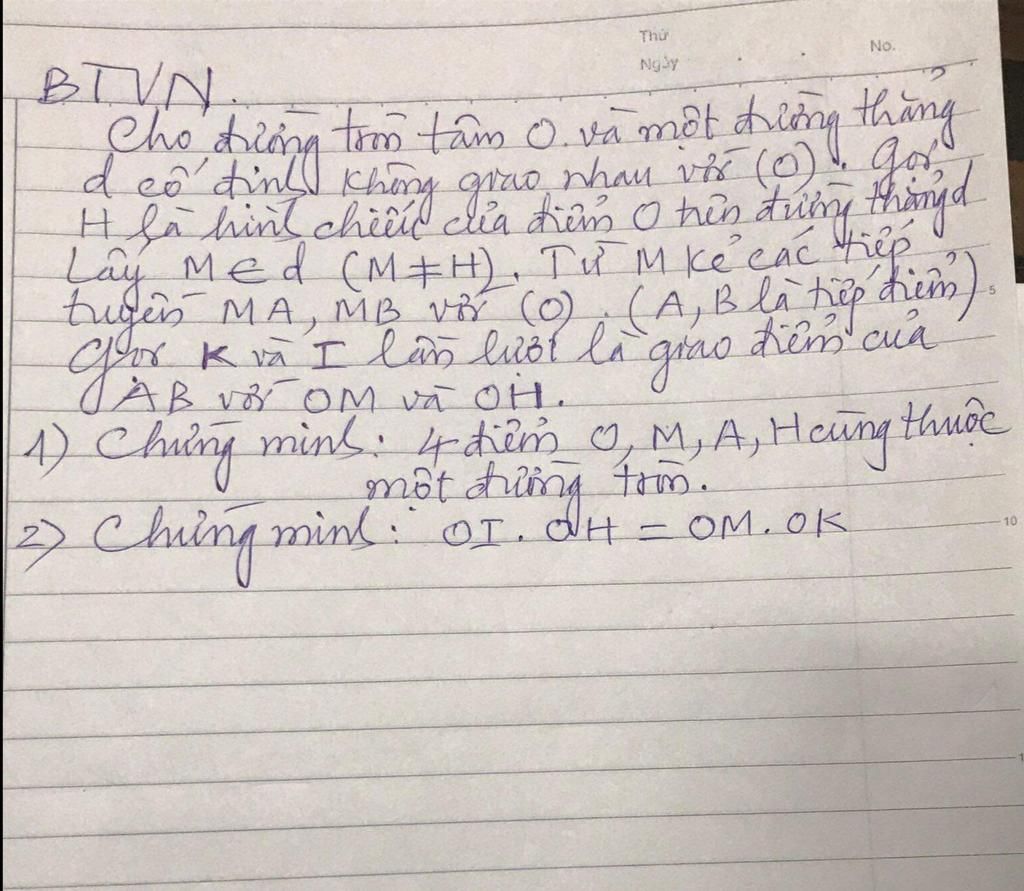 Thứ
Ngày
No.
BTVN.
Cho đường tròn tâm O. và một đường thẳng
d cố định không giao nhau với (O). Gọi
H là hình chiếu của điểm O trên đường thẳng d
Lấy M∈d (M≠H). Từ M kẻ các tiếp
tuyến MA, MB với (O). (A, B là tiếp điểm)
5
Gọi K và I lần lượt là giao điểm của
AB với OM và OH.
1) Chứng minh: 4 điểm O, M, A, H cùng thuộc
một đường tròn.
2) Chứng minh: OI. OH = OM. OK
10